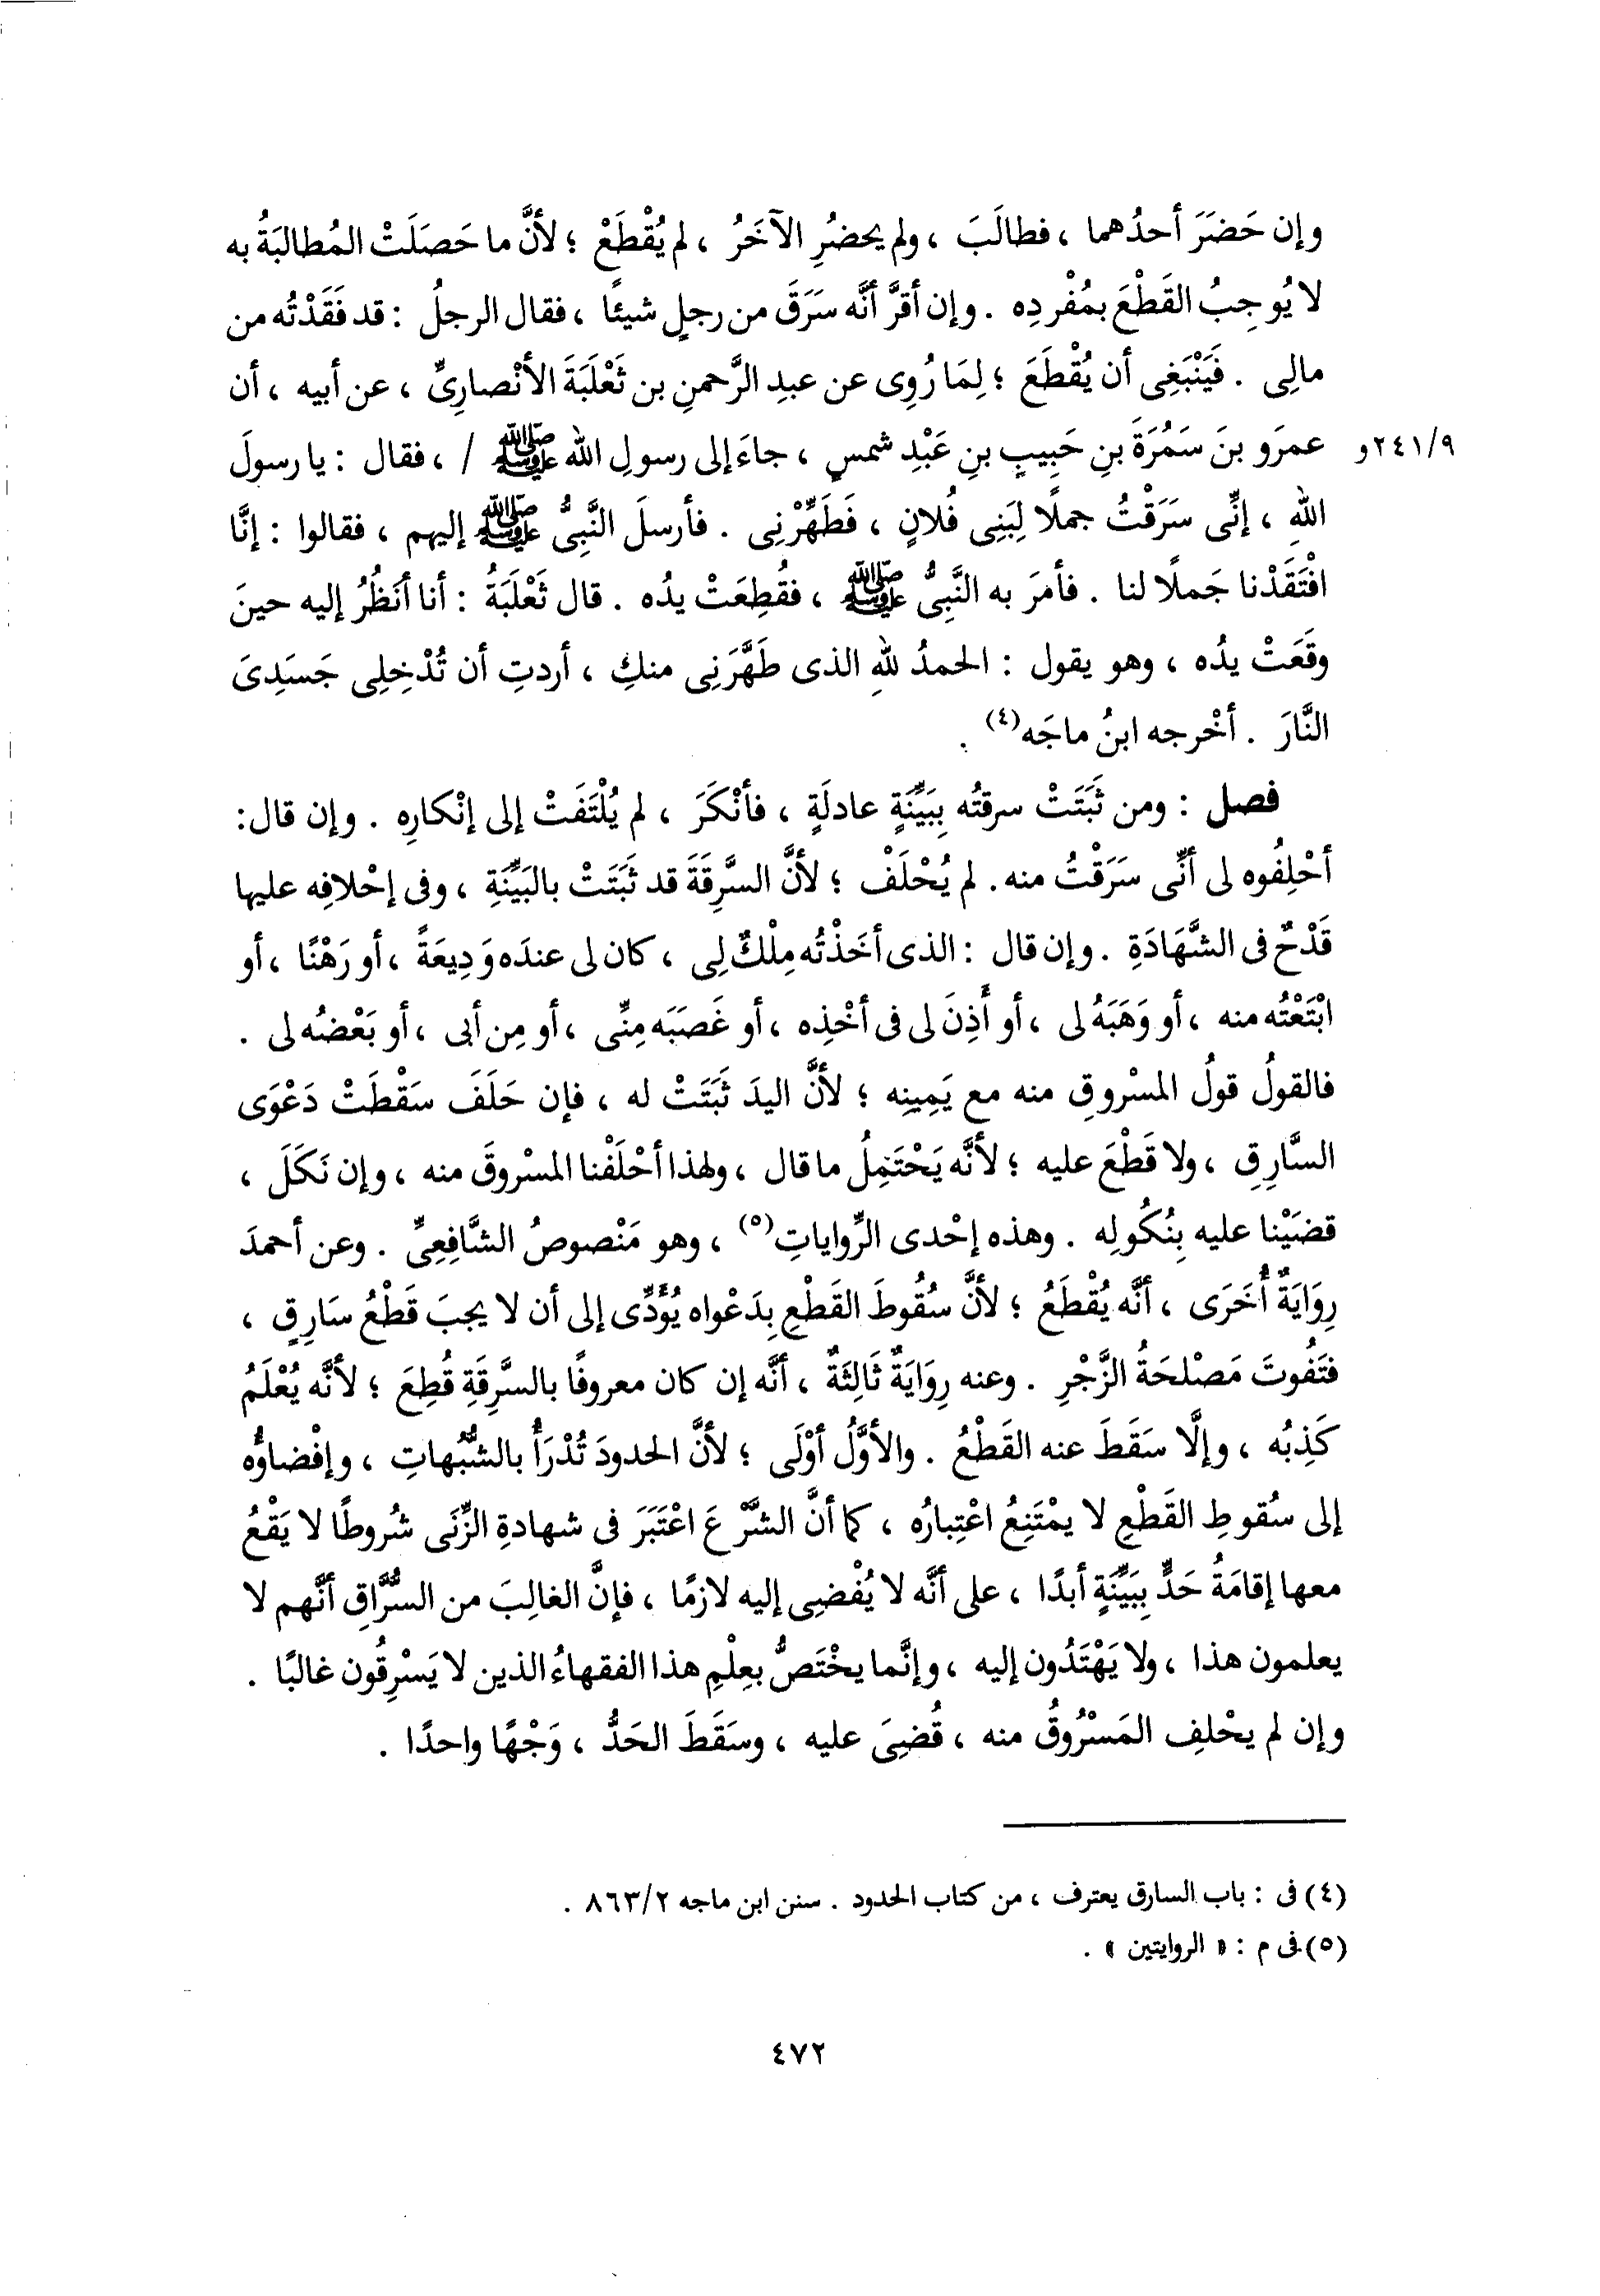 وإن حَضَرَ أحدُهما ، فطالَبَ ، ولم يحضُرِ الآخَرُ ، لم يُقْطَعْ ؛ لأنَّ ما حَصَلَتْ المُطالبَةُ به
لا يُوجِبُ القَطْعَ بمُفْردِه . وإن أقرَّ أنَّه سَرَقَ من رجلٍ شيئًا ، فقال الرجلُ : قد فَقَدْتُه من
مالِى . فَيَنْبَغِى أن يُقْطَعَ ؛ لِمَا رُوِى عن عبدِ الرَّحمنِ بن ثَعْلَبَةَ الأنْصارِىِّ ، عن أبيه ، أن
٢٤١/٩و عمرَو بنَ سَمُرَةَ بنِ حَبِيبٍ بنِ عَبْدِ شمسٍ ، جاءَ إلى رسولِ الله ﷺ / ، فقال : يا رسولَ
اللهِ ، إنِّى سَرَقْتُ جملًا لِبَنِى فُلانٍ ، فَطَهِّرْنِى . فأرسلَ النَّبِىُّ ﷺ إليهم ، فقالوا : إنَّا
افْتَقَدْنا جَملًا لنا . فأمرَ به النَّبِىُّ ﷺ ، فقُطِعَتْ يدُه . قال ثَعْلَبَةُ : أنا أنظُرُ إليه حينَ
وقَعَتْ يدُه ، وهو يقول : الحمدُ للهِ الذى طَهَّرَنِى منكِ ، أردتِ أن تُدْخِلِى جَسَدِىَ
النَّارَ . أخْرجه ابنُ ماجَه(٤) .
فصل : ومن ثَبَتَتْ سرقتُه بِبَيِّنَةٍ عادلَةٍ ، فأنْكَرَ ، لم يُلْتَفَتْ إلى إنْكارِه . وإن قال :
أحْلِفُوه لى أنِّى سَرَقْتُ منه . لم يُحْلَفْ ؛ لأنَّ السَّرِقَةَ قد ثَبَتَتْ بالبَيِّنَةِ ، وفى إحْلافِه عليها
قَدْحٌ فى الشَّهَادَةِ . وإن قال : الذى أخَذْتُه مِلْكٌ لِى ، كان لى عندَه وَدِيعَةً ، أو رَهْنًا ، أو
ابْتَعْتُه منه ، أو وَهَبَهُ لى ، أو أَذِنَ لى فى أخْذِه ، أو غَصَبَه مِنِّى ، أو مِن أبى ، أو بَعْضُه لى .
فالقولُ قولُ المسْروقِ منه مع يَمِينِه ؛ لأنَّ اليدَ ثَبَتَتْ له ، فإن حَلَفَ سَقْطَتْ دَعْوَى
السَّارِقِ ، ولا قَطْعَ عليه ؛ لأنَّه يَحْتَمِلُ ما قال ، ولهذا أحْلَفْنا المسْروقَ منه ، وإن نَكَلَ ،
قضَيْنا عليه بِنُكُولِه . وهذه إحْدى الرِّواياتِ(٥) ، وهو مَنْصوصُ الشَّافِعِىِّ . وعن أحمدَ
رِوَايَةٌ أُخَرَى ، أنَّه يُقْطَعُ ؛ لأنَّ سُقُوطَ القَطْعِ بِدَعْواه يُؤَدِّى إلى أن لا يجبَ قَطْعُ سَارِقٍ ،
فتَفُوتَ مَصْلحَةُ الزَّجْرِ . وعنه رِوَايَةٌ ثَالِثَةٌ ، أنَّه إن كان معروفًا بالسَّرِقَةِ قُطِعَ ؛ لأنَّه يُعْلَمُ
كَذِبُه ، وإلَّا سَقَطَ عنه القَطْعُ . والأوَّلُ أوْلَى ؛ لأنَّ الحدودَ تُدْرَأُ بالشُّبُهاتِ ، وإفْضاؤُه
إلى سُقوطِ القَطْعِ لا يمْتَنِعُ اعْتِبارُه ، كما أنَّ الشَّرْعَ اعْتَبَرَ فى شهادةِ الزِّنَى شُروطًا لا يَقْعُ
معها إقامَةُ حَدٍّ بِبَيِّنَةٍ أبدًا ، على أنَّه لا يُفْضِى إليه لازمًا ، فإنَّ الغالِبَ من السُّرَّاقِ أنَّهم لا
يعلمون هذا ، ولا يَهْتَدُون إليه ، وإنَّما يخْتَصُّ بعِلْمِ هذا الفقهاءُ الذين لا يَسْرِقُون غالبًا .
وإن لم يحْلفِ المَسْرُوقُ منه ، قُضِىَ عليه ، وسَقَطَ الحَدُّ ، وَجْهًا واحدًا .
(٤) فى : باب السارق يعترف ، من كتاب الحدود . سنن ابن ماجه ٨٦٣/٢ .
(٥) فى م : « الروايتين » .
٤٧٢